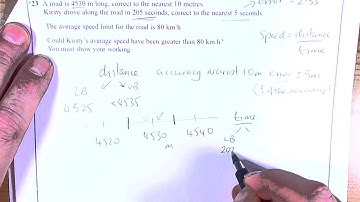 error = 2.5s
*23 A road is 4530 m long, correct to the nearest 10 metres.
Kirsty drove along the road in 205 seconds, correct to the nearest 5 seconds.
The average speed limit for the road is 80 km/h.
Could Kirsty's average speed have been greater than 80 km/h?
You must show your working.
Speed = distance
time
distance accuracy nearest 10m error = 5m
(½ of the accuracy)
LB UB
4525 <4535
time
4520 4530 4540
m
LB
202